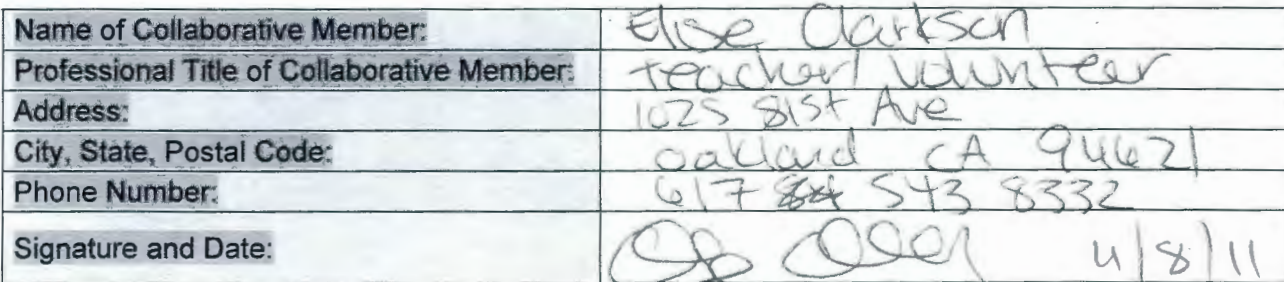 Name of Collaborative Member: Elise Clarkson
Professional Title of Collaborative Member: teacher/ volunteer
Address: 1025 81st Ave
City, State, Postal Code: oakland CA 94621
Phone Number: 617 543 8332
Signature and Date: 4/8/11